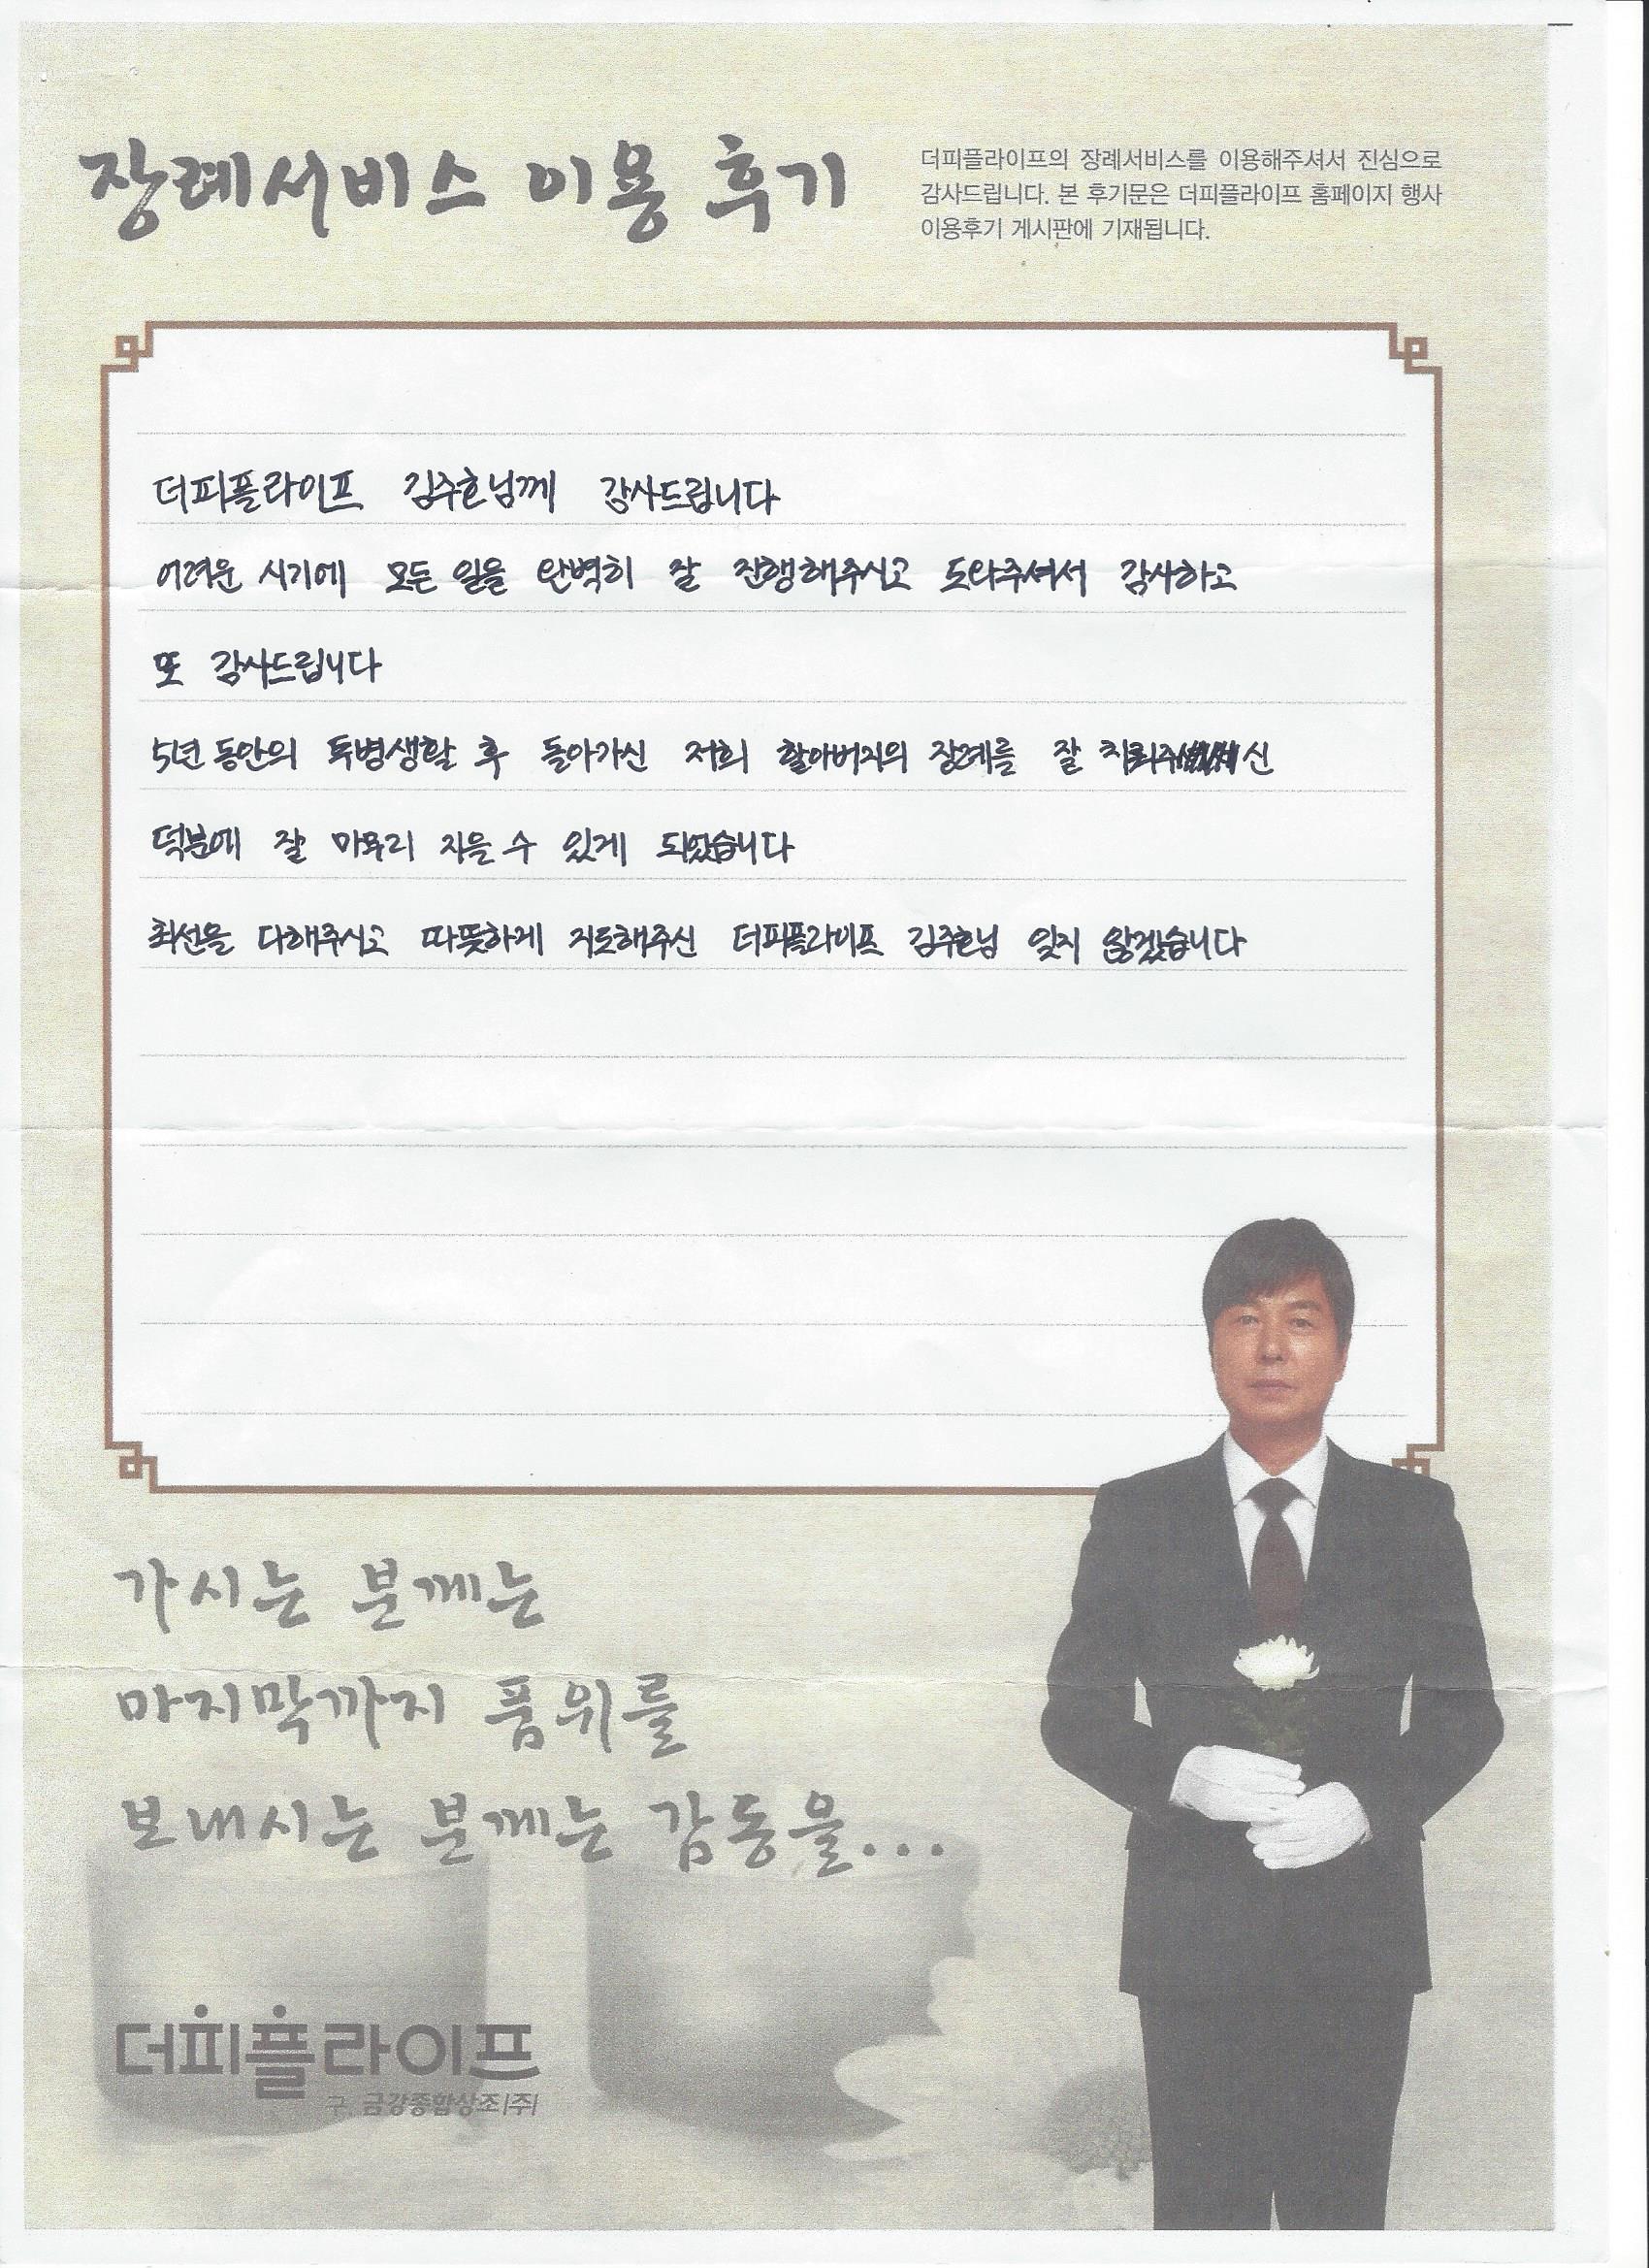 장례서비스 이용 후기
더피플라이프의 장례서비스를 이용해주셔서 진심으로
감사드립니다. 본 후기문은 더피플라이프 홈페이지 행사
이용후기 게시판에 기재됩니다.
더피플라이프 김주호님께 감사드립니다
어려운 시기에 모든 일을 완벽히 잘 진행해주시고 도와주셔서 감사하고
또 감사드립니다
5년 동안의 투병생활 후 돌아가신 저희 할아버지의 장례를 잘 치뤄주신
덕분에 잘 마무리 지을 수 있게 되었습니다
최선을 다해주시고 따뜻하게 지도해주신 더피플라이프 김주호님 잊지 않겠습니다
가시는 분께는
마지막까지 품위를
보내시는 분께는 감동을...
더피플라이프
구. 금강종합상조(주)